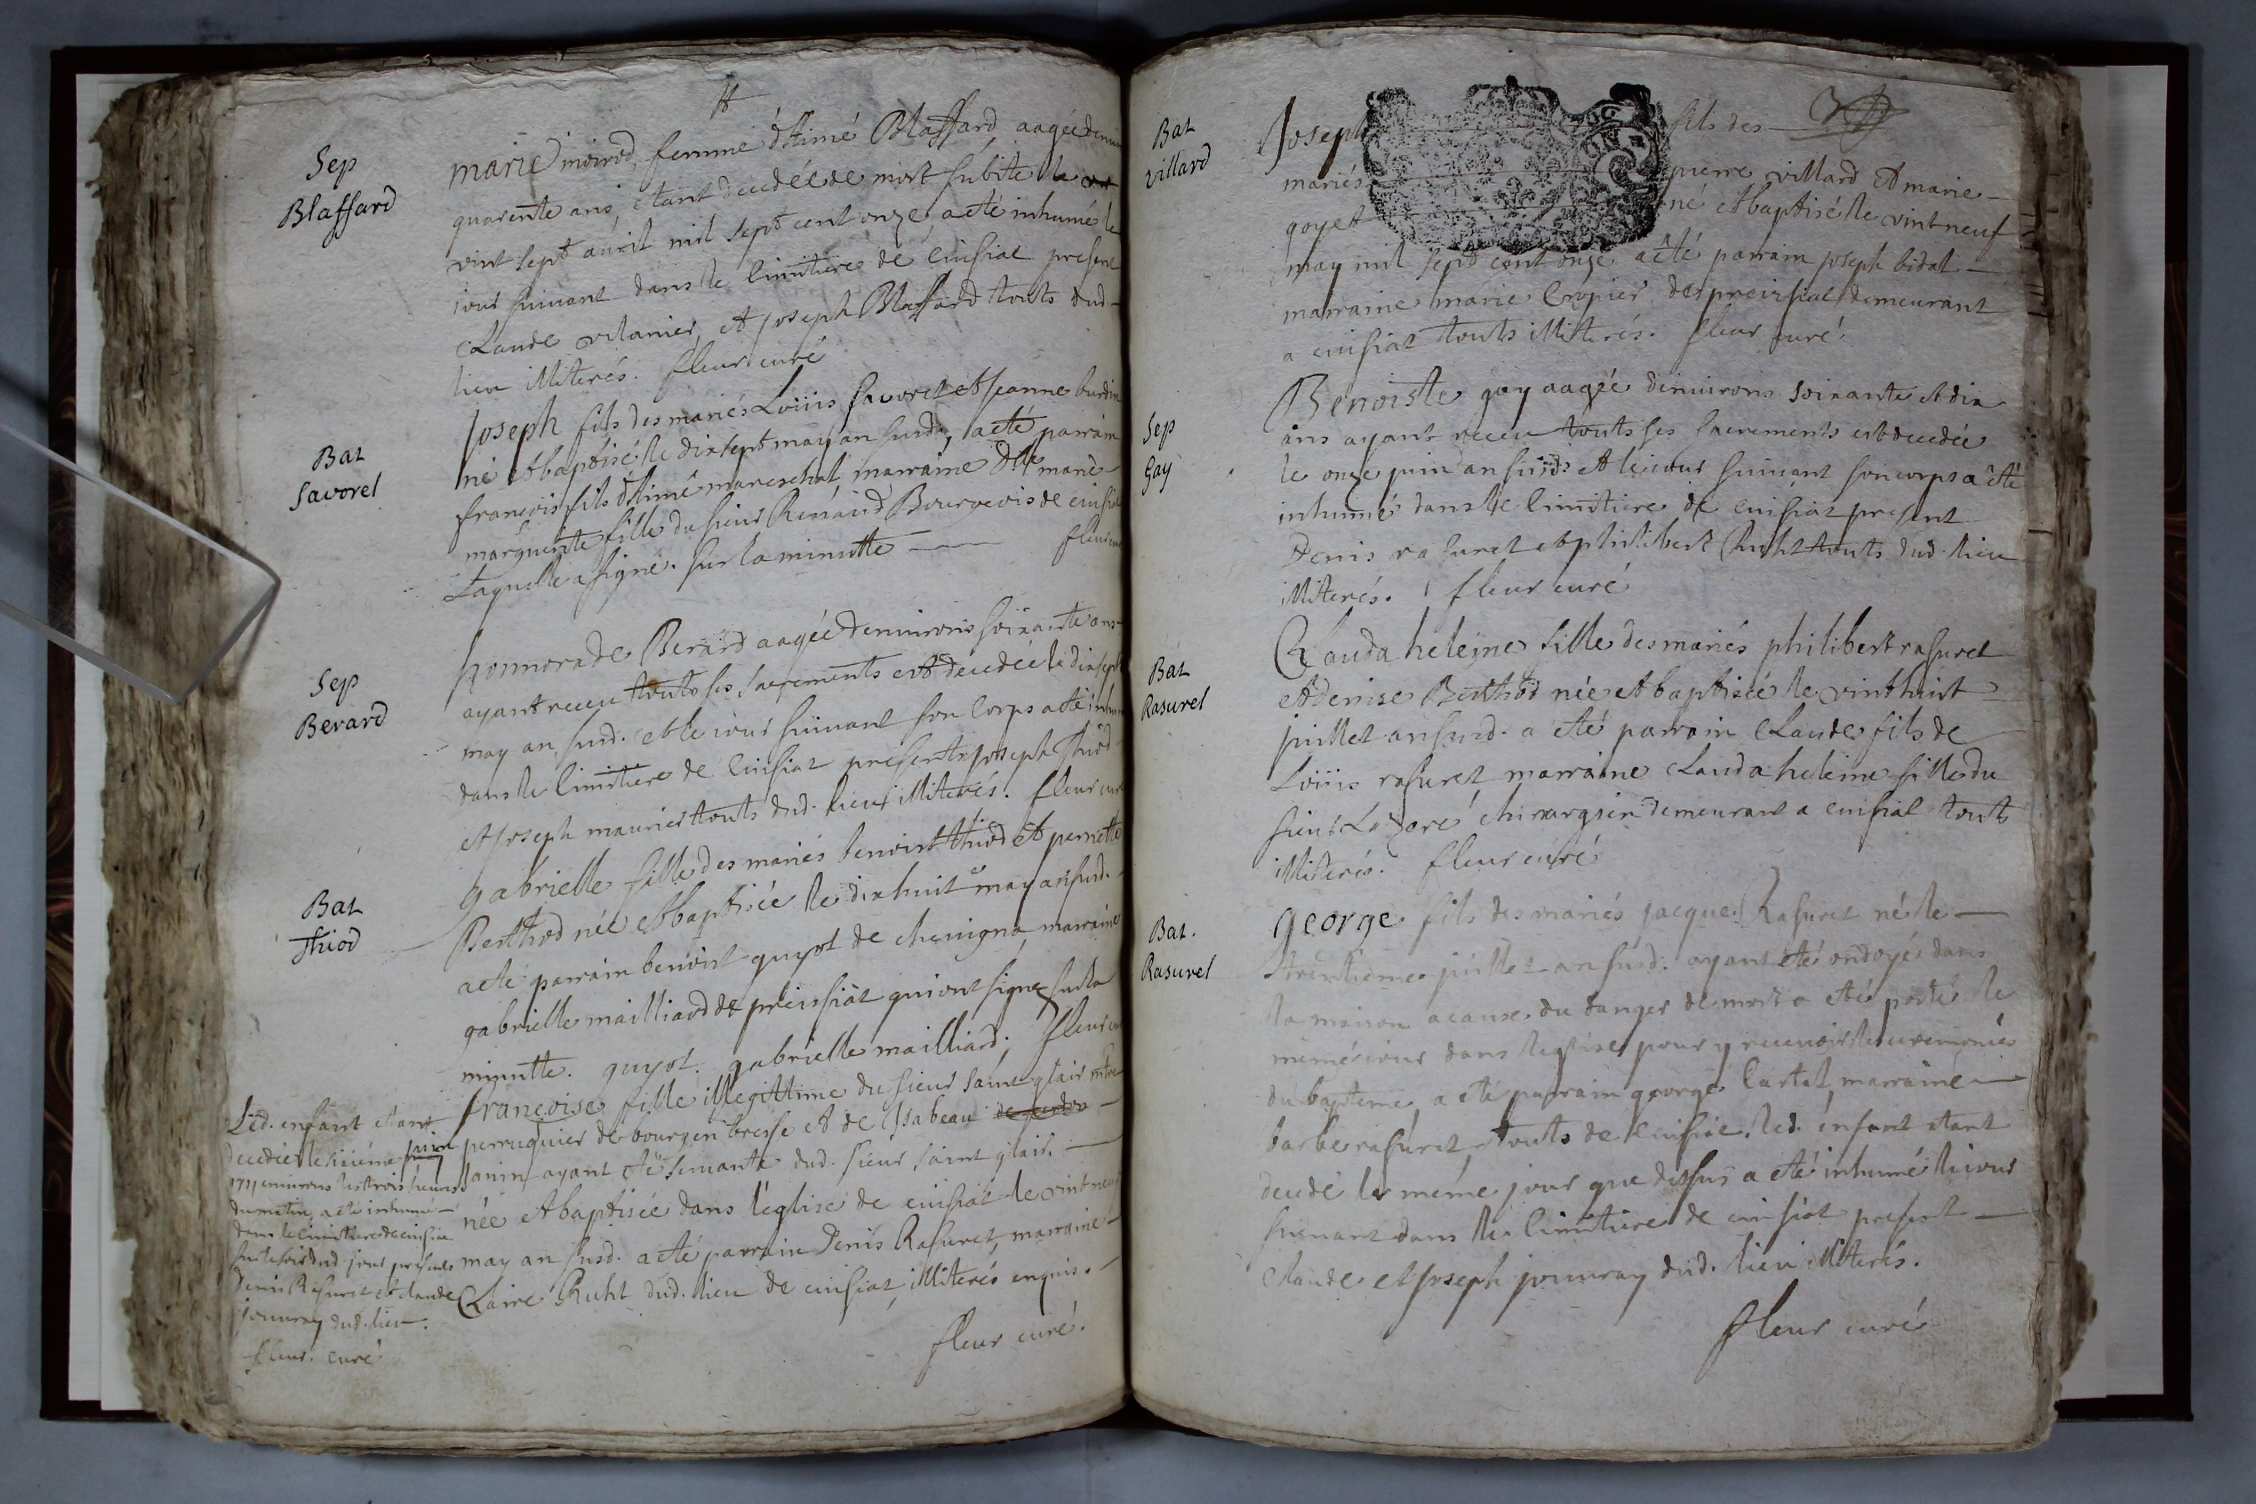 Sep
Blaffard
marie moirod, femme d'Aimé Blaffard, aagée denui
quarente ans, étant decedée de mort subite le
vint sept auril mil sept cent onze, a eté inhumé le
iour suiuant dans le Cimitiere de Cuisiat present
Claude vilanier, et Joseph Blaffard touts dud
lieu illiterés. fleur curé
Bat
Savorel
Joseph fils des mariés Loüis sauoret et Jeanne burdin
né et baptisé le dix sept may an susd., a eté parrain
francois fils d'Aimé mareschal, marraine Dlle marie
marguerite fille du sieur Renaud Bourgeois de cuisiat
Laquelle a signé. sur la minutte — fleur cur
Sep
Berard
honnorade Berard aagée denuirons soixante ans
ayant receu touts ses sacrements est decedée le dix sept
may an susd. et le iour suiuant son corps a eté inhum
dans le Cimitiere de Cuisiat presents Joseph Thiod
et Joseph maurier touts dud. lieu illiterés. fleur curé
Bat
Thiod
gabrielle fille des mariés benoist thiod et pernette
Berthod née et baptisée le dix huit may an susd.
a eté parrain benoist guyot de chauigna, marraine
gabrielle mailliard de preissiat qui ont signe sur la
minutte. guyot. gabrielle mailliard. fleur cu
francoise fille illegittime du sieur saint glair mtre
perruquier de bourg en bresse et de Isabeau
Janin ayant eté seruante dud. sieur saint glair.
née et baptisée dans l'eglise de cuisiat le vint neuf
may an susd. a eté parrain Denis Rasuret, marraine
Claire Ruht dud. lieu de cuisiat, illiterés enquis.
fleur curé.
Led. enfant etant
decedée le sixiéme juin
1711 enuirons les trois heures
du matin, a eté inhumé
dans le Cimitiere de cuisia
sur le soir dud. jour presents
Denis Rasuret et Claude
jouuray dud. lieu.
fleur. curé
Bat
villard
Joseph fils des
mariés pierre villard et marie
goyet né et baptisé le vint neuf
may mil sept cent onze. a eté parrain joseph bidal
marraine marie Cropier de preissiat demeurant
a cuisiat touts illiterés. fleur curé.
Sep
Gay
Benoiste gay aagée denuirons soixante et dix
ans ayant receu touts ses sacrements est decedée
le onze juin an susd. et le iour suiuant son corps a eté
inhumé dans le Cimitiere de cuisiat present
Denis rasuret et philibert Ruht touts dud. lieu
illiterés. fleur curé
Bat
Rasurel
Clauda heleine fille des mariés philibert rasuret
et denise Berthod née et baptisée le vint huit
juillet an susd. a eté parrain Claude fils de
Loüis rasuret, marraine Clauda heleine fille du
sieur Lozoré chirurgien demeurant a cuisiat touts
illiterés. fleur curé
Bat.
Rasurel
george fils des mariés jacque Rasuret né le
trentieme juillet an susd. ayant eté ondoyé dans
la maison a cause du danger de mort a eté porté le
même iour dans l'eglise pour y receuoir les ceremonies
du bapteme, a eté parrain george Cartel, marraine
barbe rasuret, touts de cuisiat. led. enfant etant
decedé le méme jour que dessus a eté inhumé le iour
suiuant dans le Cimitiere de cuisiat present
Claude et Joseph jouuray dud. lieu illiterés.
fleur curé